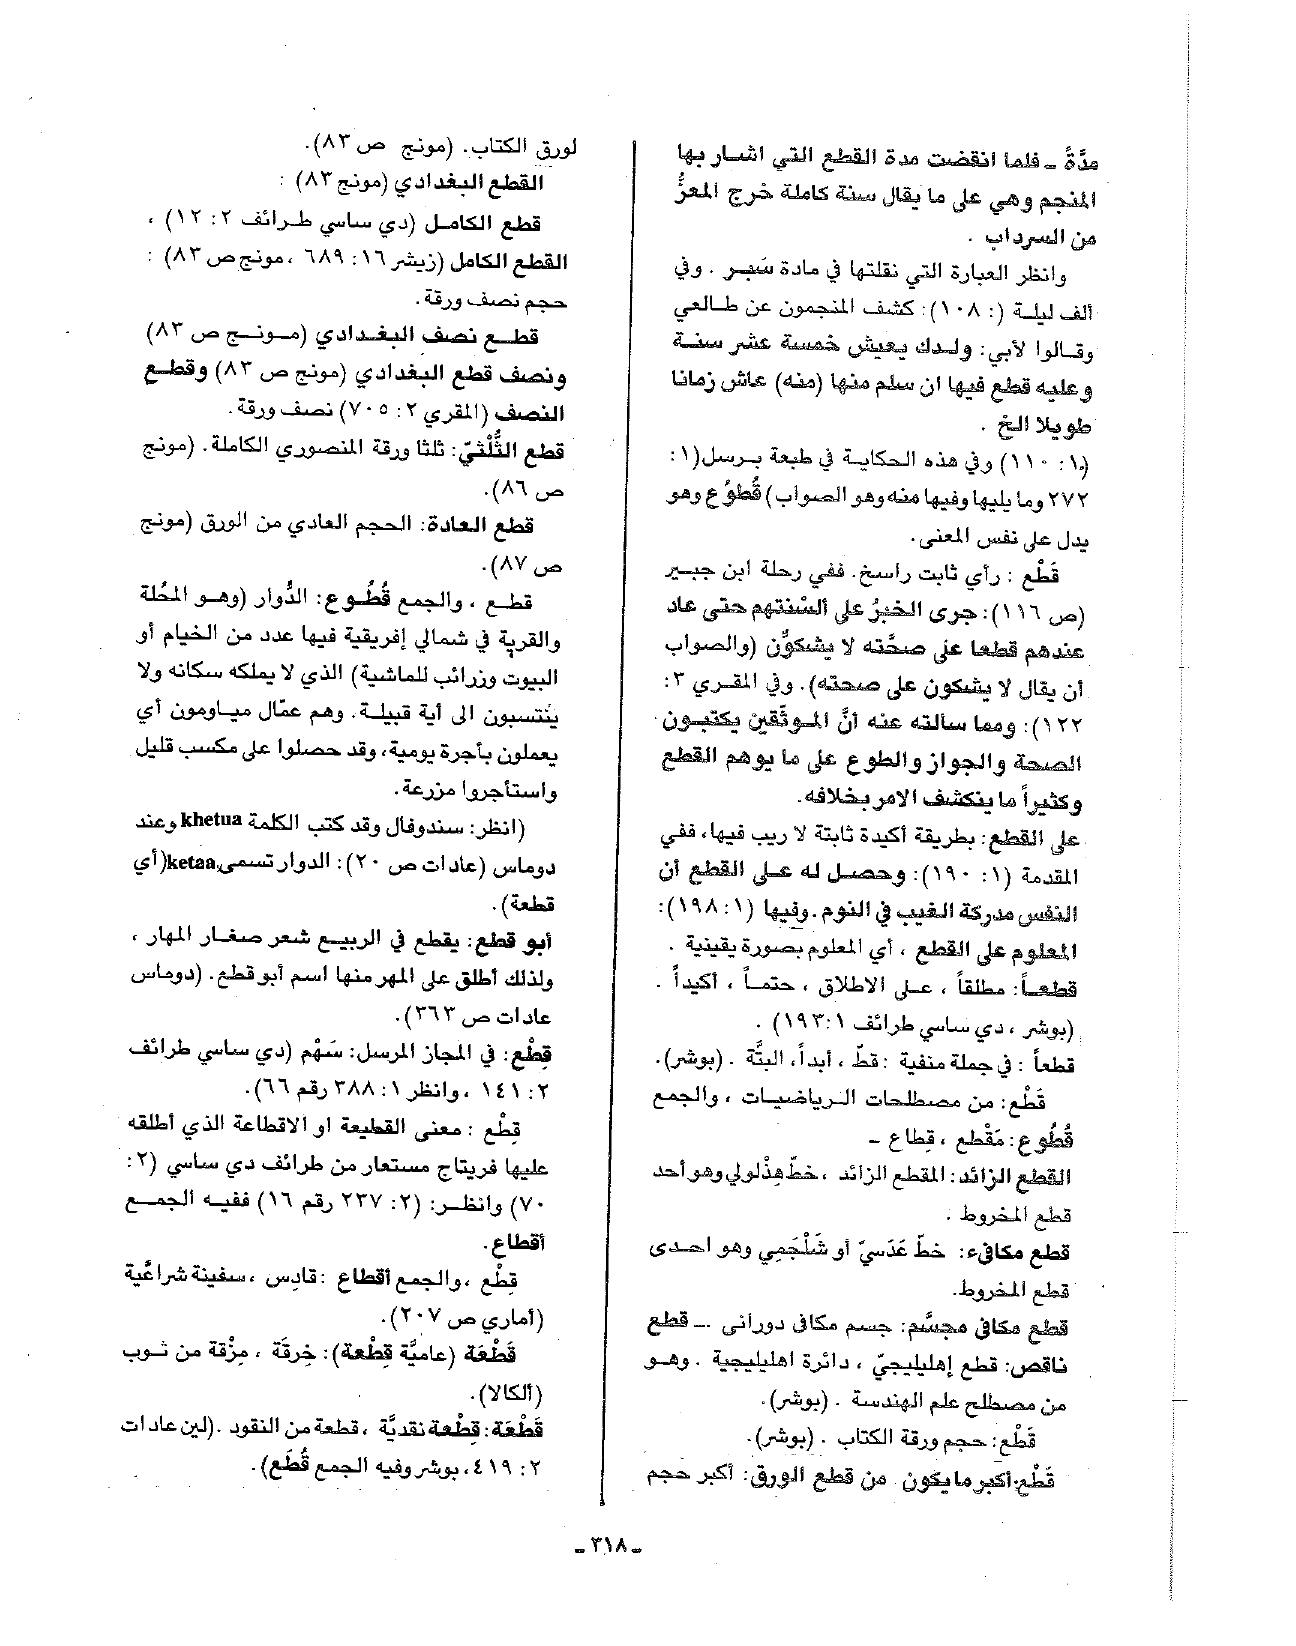 مدَّةً ـ فلما انقضت مدة القطع التي اشار بها
المنجم وهي على ما يقال سنة كاملة خرج المعزُّ
من السرداب .
وانظر العبارة التي نقلتها في مادة سَبر . وفي
ألف ليلة (: ١٠٨): كشف المنجمون عن طالعي
وقالوا لأبي: ولدك يعيش خمسة عشر سنة
وعليه قطع فيها ان سلم منها (منه) عاش زمانا
طويلا الخ .
(١: ١١٠) وفي هذه الحكاية في طبعة برسل (١:
٢٧٢ وما يليها وفيها منه وهو الصواب) قُطوُع وهو
يدل على نفس المعنى.
قَطْع : رأي ثابت راسخ. ففي رحلة ابن جبير
(ص ١١٦): جرى الخبرُ على ألسْنتهم حتى عاد
عندهم قطعا على صحَّته لا يشكوُّن (والصواب
أن يقال لا يشكون على صحته). وفي المقري ٣:
١٢٢): ومما سالته عنه أنَّ الموثَّقين يكتبون
الصحة والجواز والطوع على ما يوهم القطع
وكثيراً ما ينكشف الامر بخلافه.
على القطع: بطريقة أكيدة ثابتة لا ريب فيها، ففي
المقدمة (١: ١٩٠): وحصل له على القطع أن
النفس مدركة الغيب في النوم. وفيها (١: ١٩٨):
المعلوم على القطع ، أي المعلوم بصورة يقينية .
قطعاً: مطلقاً ، على الاطلاق ، حتماً ، أكيداً .
(بوشر ، دي ساسي طرائف ١: ١٩٣) .
قطعاً : في جملة منفية : قطّ ، أبداً، البتَّة . (بوشر).
قَطْع: من مصطلحات الرياضيات ، والجمع
قُطُوع: مَقْطع ، قِطاع ـ
القطع الزائد: المقطع الزائد ، خطّ هِذْلولي وهو أحد
قطع المخروط .
قطع مكافيء: خطّ عَدَسيّ أو شَلْجَمِي وهو احدى
قطع المخروط.
قطع مكافى مجسَّم: جسم مكافى دورانى .ـ قطع
ناقص: قطع إهليليجيّ ، دائرة اهليليجية . وهو
من مصطلح علم الهندسة . (بوشر).
قَطْع: حجم ورقة الكتاب . (بوشر).
قَطْع: أكبر ما يكون من قطع الورق: أكبر حجم
لورق الكتاب. (مونج ص ٨٣).
القطع البغدادي (مونج ٨٣) :
قطع الكامل (دي ساسي طرائف ٢: ١٢) ،
القطع الكامل (زيشر ١٦: ٦٨٩ ، مونج ص ٨٣) :
حجم نصف ورقة.
قطع نصف البغدادي (مونج ص ٨٣)
ونصف قطع البغدادي (مونج ص ٨٣) وقطع
النصف (المقري ٢: ٧٠٥) نصف ورقة.
قطع الثُّلْثيّ: ثلثا ورقة المنصوري الكاملة. (مونج
ص ٨٦).
قطع العادة: الحجم العادي من الورق (مونج
ص ٨٧).
قطع ، والجمع قُطُوع: الدُّوار (وهو المحُلة
والقرية في شمالي إفريقية فيها عدد من الخيام أو
البيوت وزرائب للماشية) الذي لا يملكه سكانه ولا
ينتسبون الى أية قبيلة. وهم عمّال مياومون أي
يعملون بأجرة يومية، وقد حصلوا على مكسب قليل
واستأجروا مزرعة.
(انظر: سندوفال وقد كتب الكلمة khetua وعند
دوماس (عادات ص ٢٠): الدوار تسمى ketaa (أي
قطعة).
أبو قطع: يقطع في الربيع شعر صغار المهار ،
ولذلك أطلق على المهر منها اسم أبو قطع. (دوماس
عادات ص ٣٦٣).
قِطْع: في المجاز المرسل: سَهْم (دي ساسي طرائف
٢: ١٤١ ، وانظر ١: ٣٨٨ رقم ٦٦).
قِطْع : معنى القطيعة او الاقطاعة الذي أطلقه
عليها فريتاج مستعار من طرائف دي ساسي (٢:
٧٠) وانظر: (٢: ٢٣٧ رقم ١٦) ففيه الجمع
أقطاع.
قِطْع ، والجمع أقطاع : قادِس ، سفينة شراعَّية
(أماري ص ٢٠٧).
قَطْعَة (عاميَّة قِطْعة): خِرقَة ، مِزْقة من ثوب
(ألكالا).
قَطْعَة: قِطْعة نقديَّة ، قطعة من النقود .(لين عادات
٢: ٤١٩، بوشر وفيه الجمع قُطَع).
ـ ٣١٨ ـ